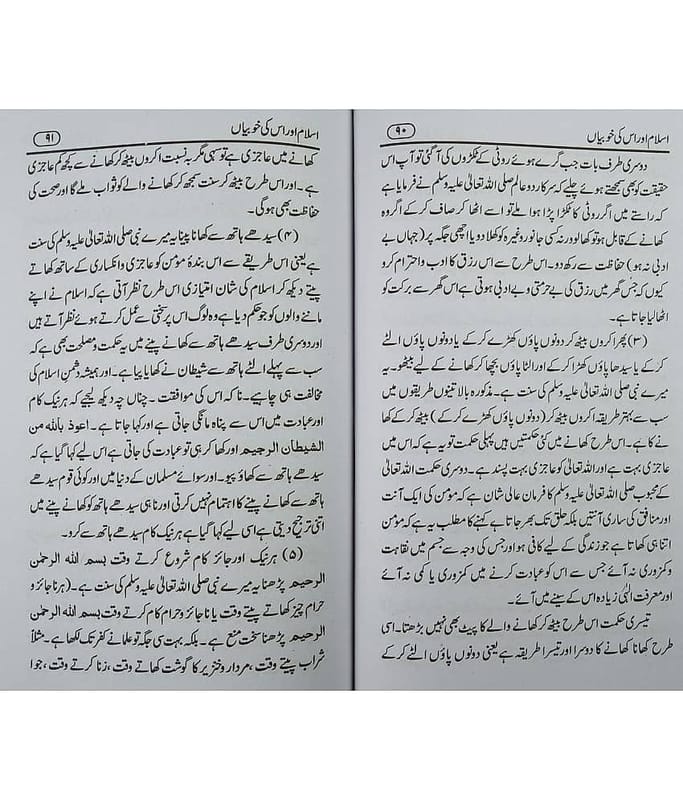 اسلام اور اس کی خوبیاں
۹۰
دوسری طرف بات جب گرے ہوئے روٹی کے ٹکڑوں کی آگئی تو آپ اس
حقیقت کو بھی سمجھتے ہوئے چلیے کہ سرکار دو عالم صلی اللہ تعالیٰ علیہ وسلم نے فرمایا ہے
کہ راستے میں اگر روٹی کا ٹکڑا پڑا ہوا ملے تو اسے اٹھا کر صاف کر کے اگر وہ
کھانے کے قابل ہو تو کھا لو ورنہ کسی جانور وغیرہ کو کھلا دو یا اچھی جگہ پر (جہاں بے
ادبی نہ ہو) حفاظت سے رکھ دو۔ اس طرح سے اس رزق کا ادب و احترام کرو
کیوں کہ جس گھر میں رزق کی بے حرمتی و بے ادبی ہوتی ہے اس گھر سے برکت کو
اٹھا لیا جاتا ہے۔
(۳) پھر اکڑوں بیٹھ کر دونوں پاؤں کھڑے کر کے یا دونوں پاؤں الٹے
کر کے یا سیدھا پاؤں کھڑا کر کے اور الٹا پاؤں بچھا کر کھانے کے لیے بیٹھو۔ یہ
میرے نبی صلی اللہ تعالیٰ علیہ وسلم کی سنت ہے۔ مذکورہ بالا تینوں طریقوں میں
سب سے بہتر طریقہ اکڑوں بیٹھ کر (دونوں پاؤں کھڑے کر کے) بیٹھ کر کے کھا
نے کا ہے۔ اس طرح کھانے میں کئی حکمتیں ہیں پہلی حکمت تو یہ ہے کہ اس میں
عاجزی بہت ہے اور اللہ تعالیٰ کو عاجزی بہت پسند ہے۔ دوسری حکمت اللہ تعالیٰ
کے محبوب صلی اللہ تعالیٰ علیہ وسلم کا فرمان عالی شان ہے کہ مؤمن کی ایک آنت
اور منافق کی ساری آنتیں بلکہ حلق تک بھر جاتا ہے کہنے کا مطلب یہ ہے کہ مؤمن
اتنا ہی کھاتا ہے جو زندگی کے لیے کافی ہو اور جس کی وجہ سے جسم میں نقاہت
و کمزوری نہ آئے جس سے اس کو عبادت کرنے میں کمزوری یا کمی نہ آئے
اور معرفت الٰہی زیادہ اس کے سینے میں آئے۔
تیسری حکمت اس طرح بیٹھ کر کھانے والے کا پیٹ بھی نہیں بڑھتا۔ اسی
طرح کھانا کھانے کا دوسرا اور تیسرا طریقہ ہے یعنی دونوں پاؤں الٹے کر کے
اسلام اور اس کی خوبیاں
۹۱
کھانے میں عاجزی ہے تو سہی مگر بہ نسبت اکڑوں بیٹھ کر کھانے سے کچھ کم عاجزی
ہے۔ اور اس طرح بیٹھ کر سنت سمجھ کر کھانے والے کو ثواب ملے گا اور صحت کی
حفاظت بھی ہوگی۔
(۴) سیدھے ہاتھ سے کھانا پینا یہ میرے نبی صلی اللہ تعالیٰ علیہ وسلم کی سنت
ہے یعنی اس طریقے سے اس بندۂ مؤمن کو عاجزی و انکساری کے ساتھ کھاتے
پیتے دیکھ کر اسلام کی شان امتیازی اس طرح نظر آتی ہے کہ اسلام نے اپنے
ماننے والوں کو جو حکم دیا ہے وہ لوگ اس پر سختی سے عمل کرتے ہوئے نظر آتے ہیں
اور دوسری طرف سیدھے ہاتھ سے کھانے پینے میں یہ حکمت و مصلحت بھی ہے کہ
سب سے پہلے الٹے ہاتھ سے شیطان نے کھایا پیا ہے۔ اور ہمیشہ دشمن اسلام کی
مخالفت ہی چاہیے۔ نا کہ اس کی موافقت۔ چناں چہ دیکھ لیجیے کہ ہر نیک کام
اور عبادت میں اس سے پناہ مانگی جاتی ہے اور کہا جاتا ہے۔ اعوذ باللہ من
الشیطان الرجیم اور کھا کر ہی تو عبادت کی جاتی ہے اس لیے کہا گیا ہے کہ
سیدھے ہاتھ سے کھاؤ پیو۔ اور سوائے مسلمان کے دنیا میں اور کوئی قوم سیدھے
ہاتھ سے کھانے پینے کا اہتمام نہیں کرتی اور نا ہی سیدھے ہاتھ کو کھانے پینے میں
اتنی ترجیح دیتی ہے اسی لیے کہا گیا ہے کہ ہر نیک کام سیدھے ہاتھ سے کرو۔
(۵) ہر نیک اور جائز کام شروع کرتے وقت بسم اللہ الرحمٰن
الرحیم پڑھنا یہ میرے نبی صلی اللہ تعالیٰ علیہ وسلم کی سنت ہے۔ (ہر ناجائز و
حرام چیز کھاتے پیتے وقت یا ناجائز و حرام کام کرتے وقت بسم اللہ الرحمٰن
الرحیم پڑھنا سخت منع ہے۔ بلکہ بہت سی جگہ تو علما نے کفر تک لکھا ہے۔ مثلاً
شراب پیتے وقت، مردار و خنزیر کا گوشت کھاتے وقت، زنا کرتے وقت، جوا